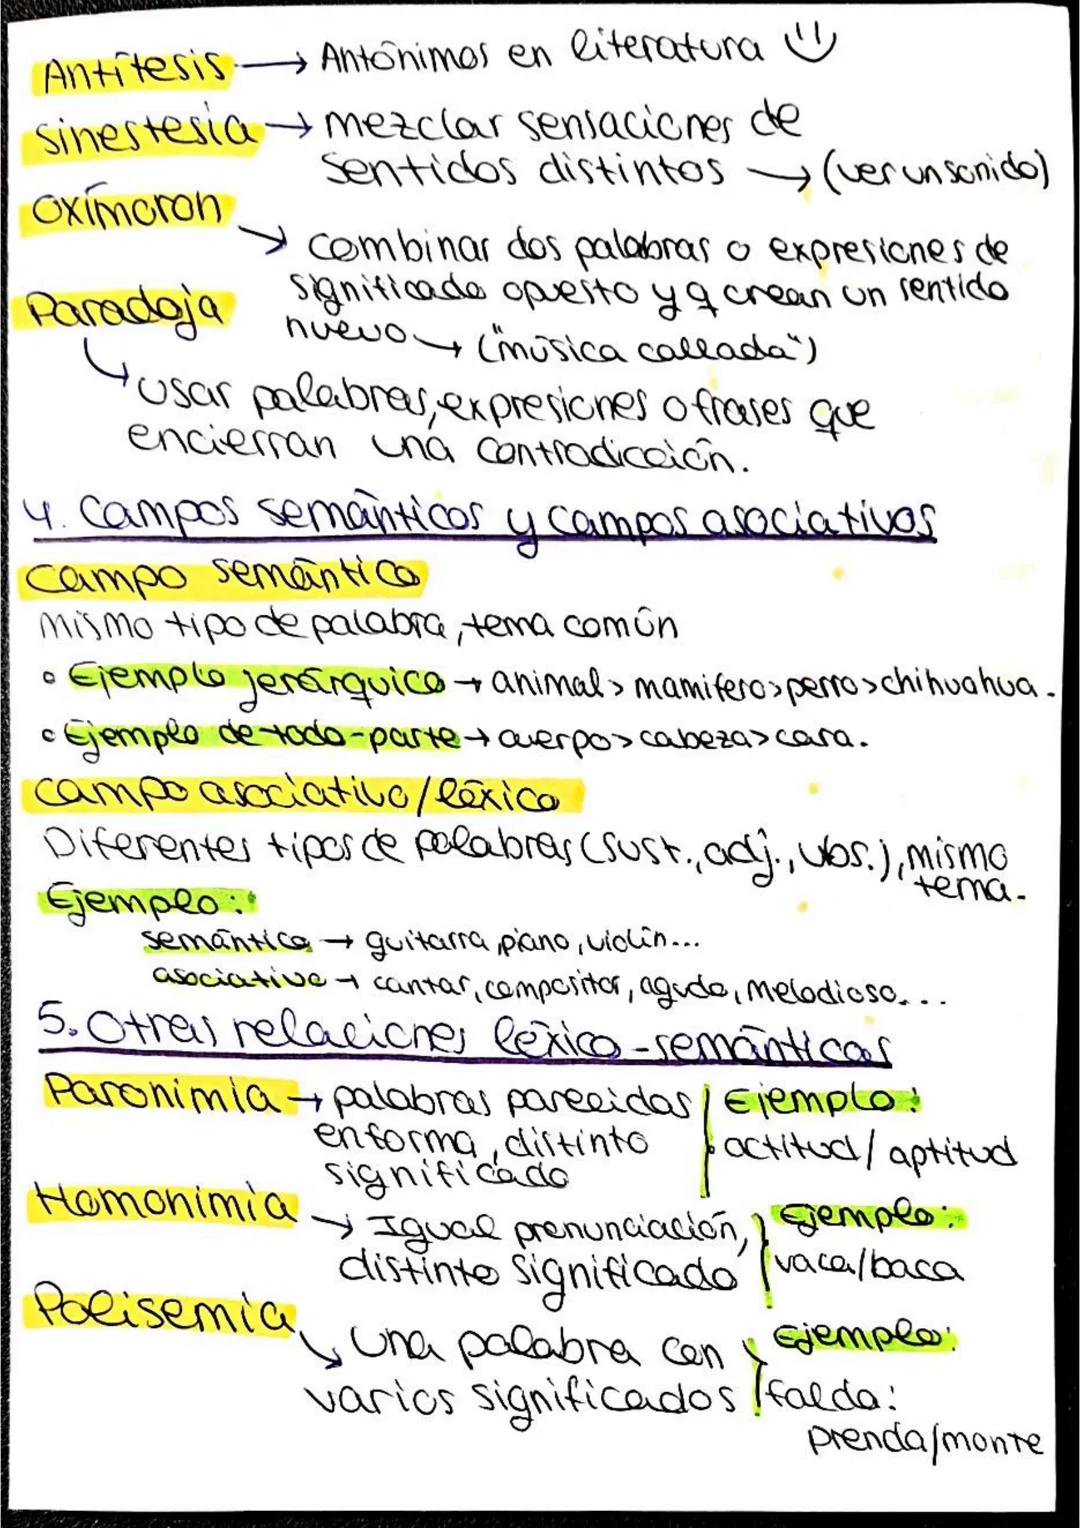 Antítesis → Antónimos en literatura
sinestesia → mezclar sensaciones de
sentidos distintos → (ver un sonido)
oxímoron
→ combinar dos palabras o expresiones de
significado opuesto y q crean un sentido
nuevo → ("música callada")
Paradoja
↳ usar palabras, expresiones o frases que
encierran una contradicción.
4. Campos semánticos y campos asociativos
campo semántico
Mismo tipo de palabra, tema común
• Ejemplo jerárquico → animal > mamífero > perro > chihuahua.
• Ejemplo de todo-parte → cuerpo > cabeza > cara.
campo asociativo/léxico
Diferentes tipos de palabras (sust., adj., vbs.), mismo
tema.
Ejemplo:
semántico → guitarra, piano, violín...
asociativo → cantar, compositor, agudo, melodioso...
5. Otras relaciones léxico-semánticas
Paronimia → palabras parecidas
en forma, distinto
significado
Ejemplo:
actitud/aptitud
Homonimia
→ Igual pronunciación,
distinto significado
Ejemplo:
vaca/baca
Polisemia
↘ Una palabra con
varios significados
Ejemplo:
falda:
prenda/monte